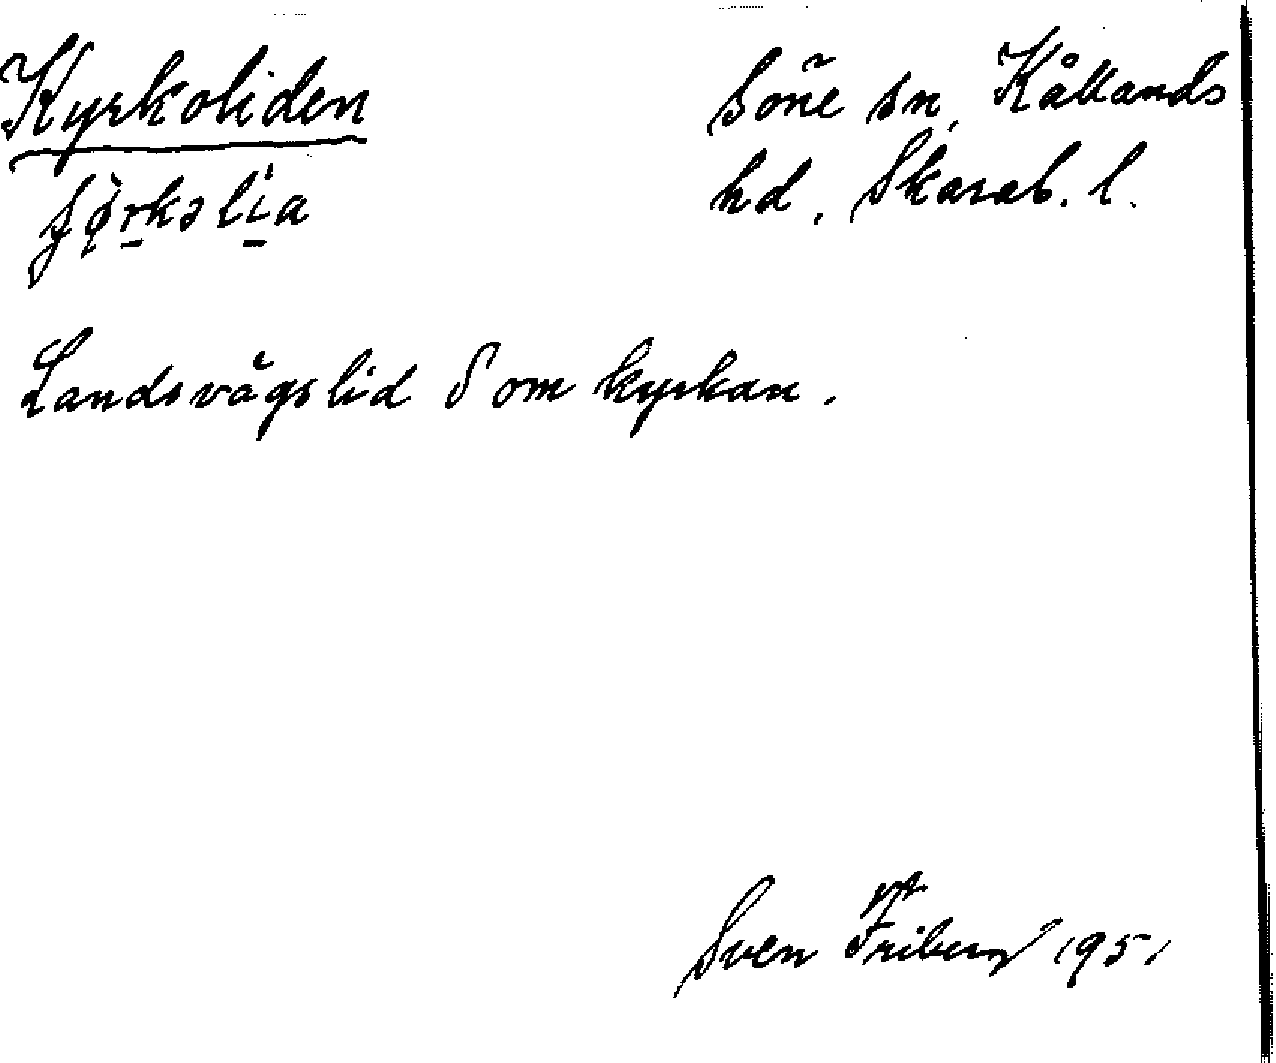 Kyrkoliden
Söne sn, Kållands
hd, Skarab. l.
Landsvägslid S om kyrkan.
Sven Friberg 1951